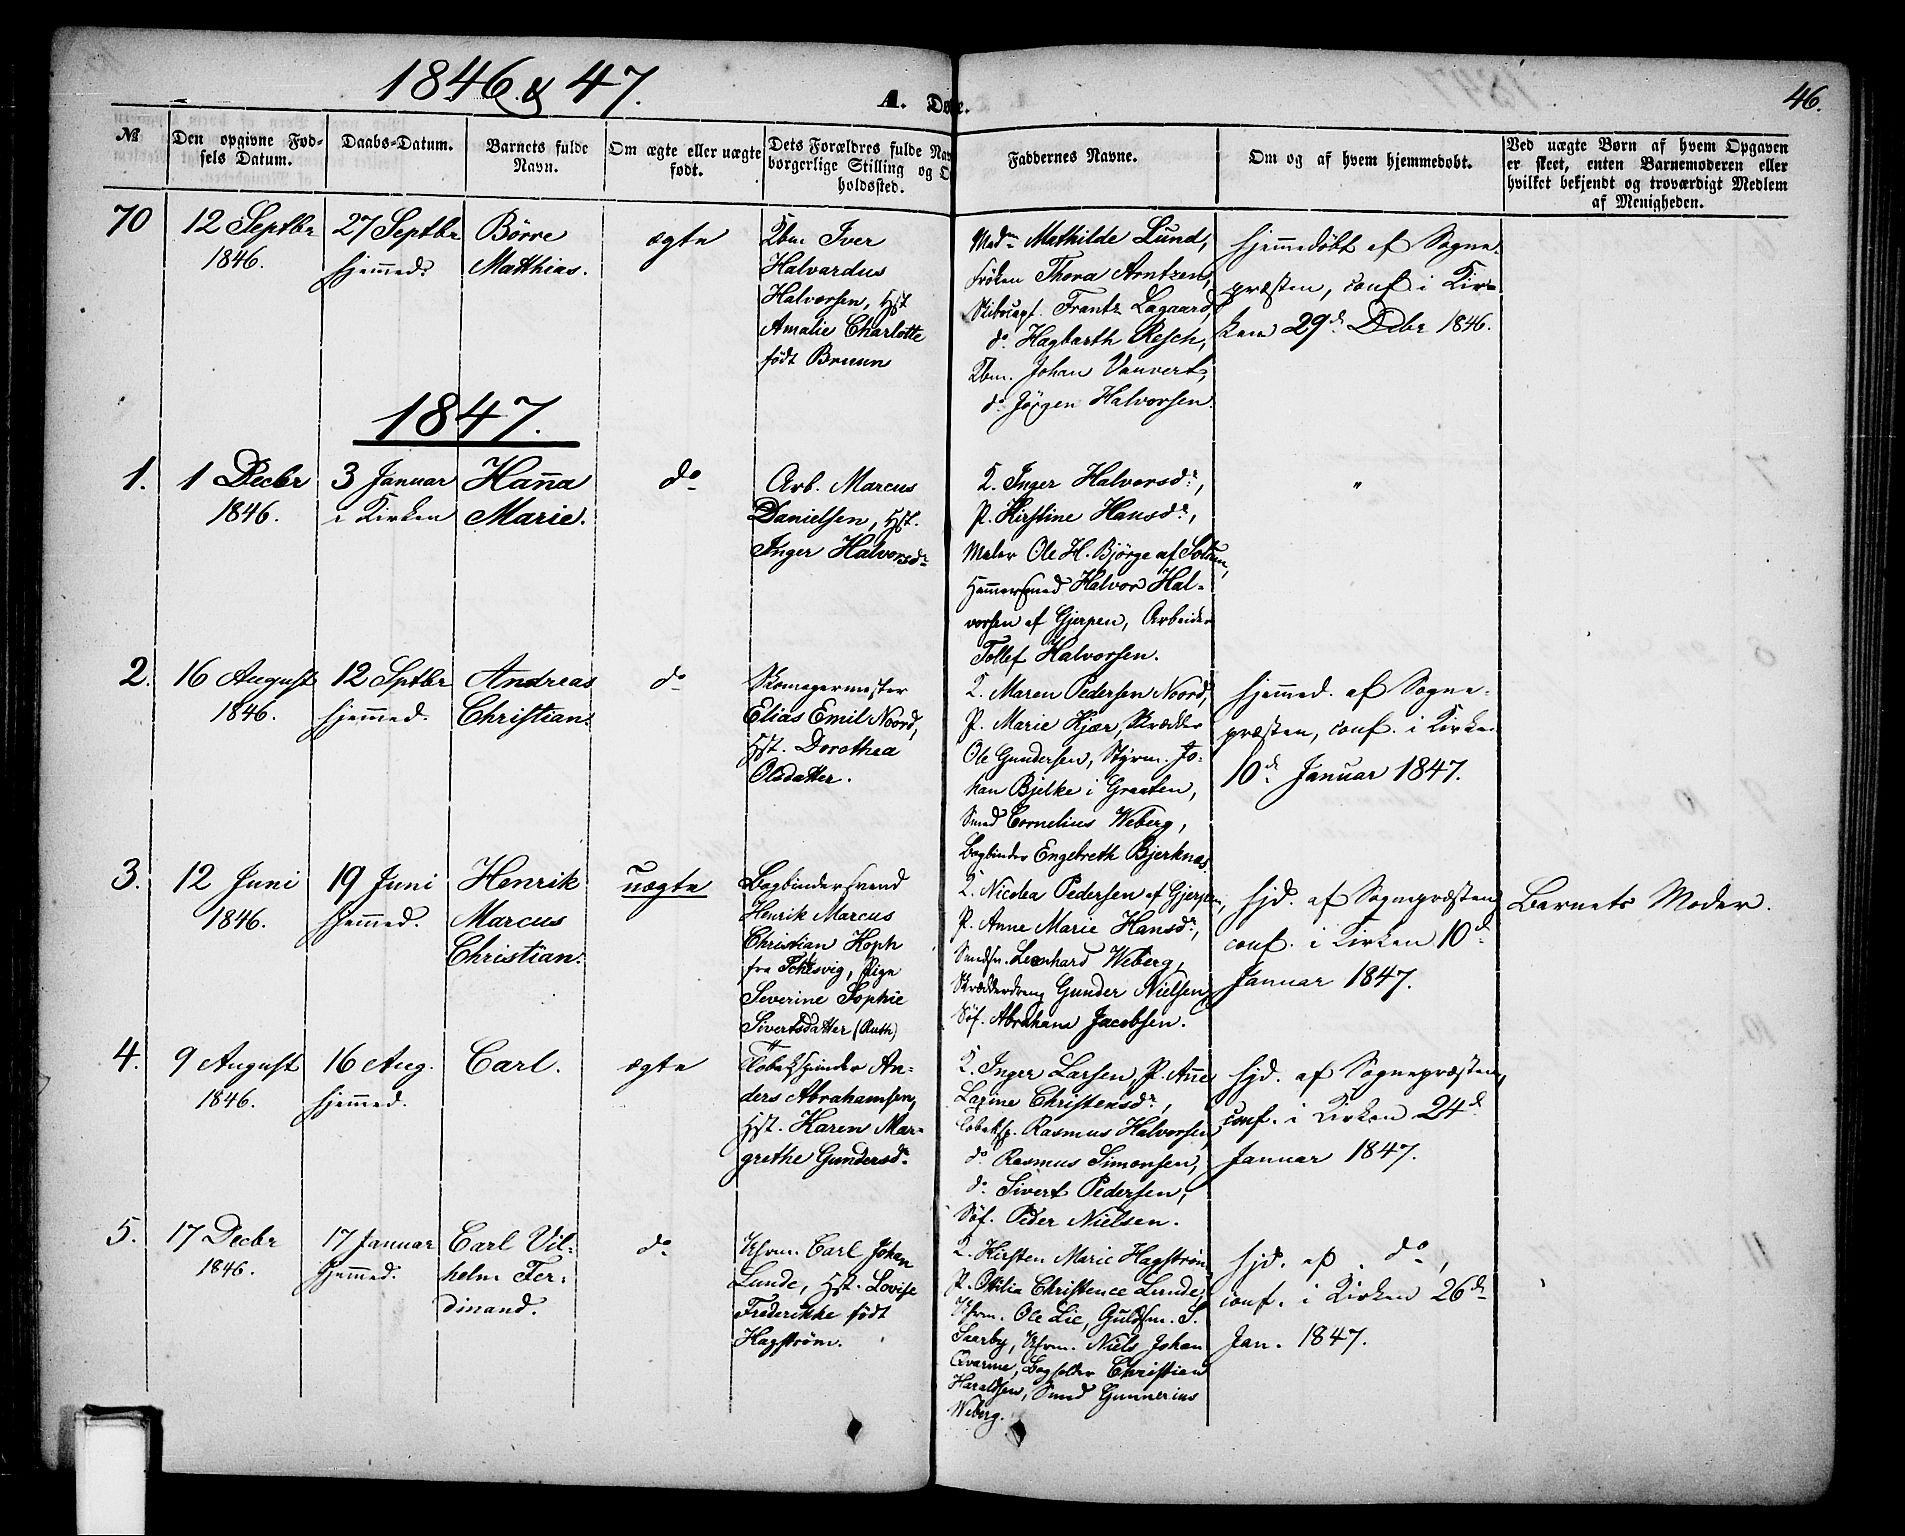 1846 & 47.
A. Døbte.
46.
№
Den opgivne Fød-
sels Datum.
Daabs-Datum.
Barnets fulde
Navn.
Om ægte eller uægte
født.
Dets Forældres fulde Nav
borgerlige Stilling og O
holdssted.
Faddernes Navne.
Om og af hvem hjemmedøbt.
Ved uægte Børn af hvem Opgaven
er skeet, enten Barnemoderen eller
hvilket bekjendt og troværdigt Medlem
af Menigheden.
70
12 Septbr
1846.
27 Septbr
hjemmed:
Börre
Matthias.
ægte
Kbm Iver
Halvardus
Halvorsen, Hst
Amalie Charlotte
født Bruun
Madm Mathilde Lund,
Frøken Thora Arntzen,
Skibscapt. Frantz Lagaard,
do. Hagbarth Resch,
Kbm. Johan Vauvert,
do. Jörgen Halvorsen.
hjemmedöbt af Sogne-
præsten, conf. i Kir-
ken 29d. Debr 1846.
1847.
1.
1 Decbr
1846.
3 Januar
i Kirken
Hanna
Marie.
do
Arb. Marcus
Danielsen, Hst.
Inger Halvorsdr
K. Inger Halvorsdr,
P. Kirstine Hansdr,
Maler Ole H. Björge af Solum,
Hammersmed Halvor Hal-
vorsen af Gjerpen, Arbeider
Tollef Halvorsen.
"
2.
16 August
1846.
12 Sptbr
hjemmed.
Andreas
Christian.
do
Skomagermester
Elias Emil Noord,
Hst. Dorothea
Olsdatter.
K. Maren Pedersen Noord,
P. Marie Kjær, Skrædder
Ole Gundersen, Styrm. Jo-
han Bjelke i Graaten,
Smed Cornelius Weberg,
Bogbinder Engebreth Bjerknæs
hjemmed. af Sogne-
præsten, conf. i Kirken
10d. Januar 1847.
3.
12 Juni
1846.
19 Juni
hjemmed.
Henrik
Marcus
Christian.
uægte
Bogbindersvend
Henrik Marcus
Christian Hoph
fra Schlesvig, Pige
Severine Sophie
Sivertsdatter (Ruth)
K. Nicolea Pedersen af Gjerpen,
P. Anne Marie Hansdr,
Smedsv. Leonhard Weberg,
Skrædderdreng Gunder Nielsen,
Söf. Abraham Jacobsen.
hjd. af Sognepræsten,
conf. i Kirken 10d.
Januar 1847.
Barnets Moder.
4.
9 August
1846.
16 Aug.
hjemmed.
Carl.
ægte
Tobakspinder An-
ders Abrahamsen,
Hst. Karen Mar-
grethe Gundersdr
K. Inger Larsen, P. Anne
Laxine Christensdr,
Tobaksp. Rasmus Halvorsen,
do Rasmus Simonsen,
do. Sivert Pedersen,
Söf. Peder Nielsen.
hjd. af Sognepræsten,
conf. i Kirken 24d
Januar 1847.
5.
17 Decbr
1846.
17 Januar
hjemmed:
Carl Vil-
helm Fer-
dinand.
do
Carl Johan
Lunde, Hst. Lovise
Frederikke født
Hagström.
K. Kirsten Marie Hagström
P. Othilia Christence Lunde,
Ole Lie, Guldsm. S.
Saarby, Niels Johan
Qvarme, Bogholder Christian
Haraldsen, Smed Gunnerius
Weberg.
hjd. af do,
conf. i Kirken 26d.
Jan. 1847.